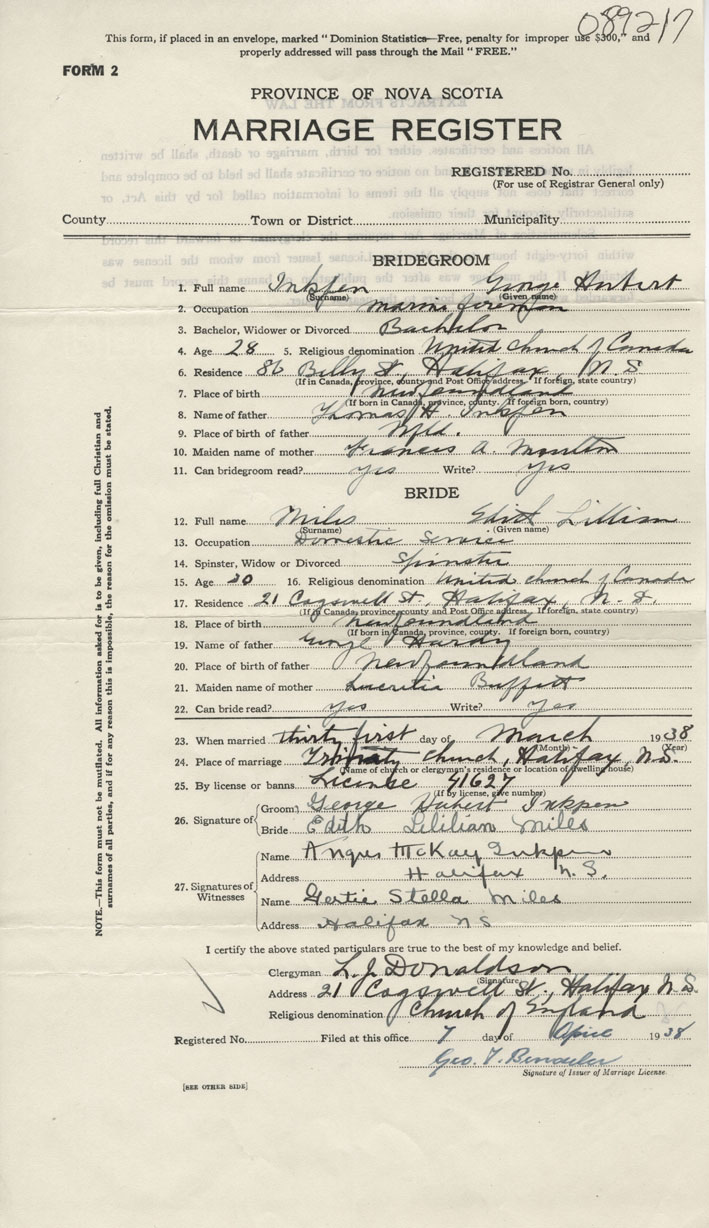 089217
This form, if placed in an envelope, marked "Dominion Statistics—Free, penalty for improper use $300," and
properly addressed will pass through the Mail "FREE."
FORM 2
PROVINCE OF NOVA SCOTIA
MARRIAGE REGISTER
REGISTERED No.
(For use of Registrar General only)
County Town or District Municipality
BRIDEGROOM
1. Full name Inkpen George Hubert
(Surname) (Given name)
2. Occupation marine foreman
3. Bachelor, Widower or Divorced Bachelor
4. Age 28 5. Religious denomination United Church of Canada
6. Residence 86 Bilby St, Halifax, N. S
(If in Canada, province, county and Post Office address. If foreign, state country)
7. Place of birth Newfoundland
(If born in Canada, province, county. If foreign born, country)
8. Name of father Thomas H. Inkpen
9. Place of birth of father Nfld.
10. Maiden name of mother Francis A. Moulton
11. Can bridegroom read? yes Write? yes
BRIDE
12. Full name Miles Edith Lillian
(Surname) (Given name)
13. Occupation Domestic Service
14. Spinster, Widow or Divorced Spinster
15. Age 20 16. Religious denomination United Church of Canada
17. Residence 21 Cogswell St., Halifax, N. S.
(If in Canada, province, county and Post Office address. If foreign, state country)
18. Place of birth Newfoundland
(If born in Canada, province, county. If foreign born, country)
19. Name of father George Hardy
20. Place of birth of father Newfoundland
21. Maiden name of mother Lucretia Buffett
22. Can bride read? yes Write? yes
23. When married thirty first day of March 1938
(Month) (Year)
24. Place of marriage Trinity Church, Halifax, N.S.
(Name of church or clergyman's residence or location of dwelling house)
25. By license or banns License 91627
(If by license, give number)
26. Signature of
Groom George Hubert Inkpen
Bride Edith Lililian Miles
27. Signatures of Witnesses
Name Angus McKay Inkpen
Address Halifax N. S.
Name Gertie Stella Miles
Address Halifax NS
I certify the above stated particulars are true to the best of my knowledge and belief.
Clergyman L. J. Donaldson
(Signature)
Address 21 Cogswell St., Halifax N.S.
Religious denomination Church of England
Registered No. Filed at this office 7 day of April 1938
Geo. T.
Signature of Issuer of Marriage License.
[SEE OTHER SIDE]
NOTE.—This form must not be mutilated. All information asked for is to be given, including full Christian and
surnames of all parties, and if for any reason this is impossible, the reason for the omission must be stated.